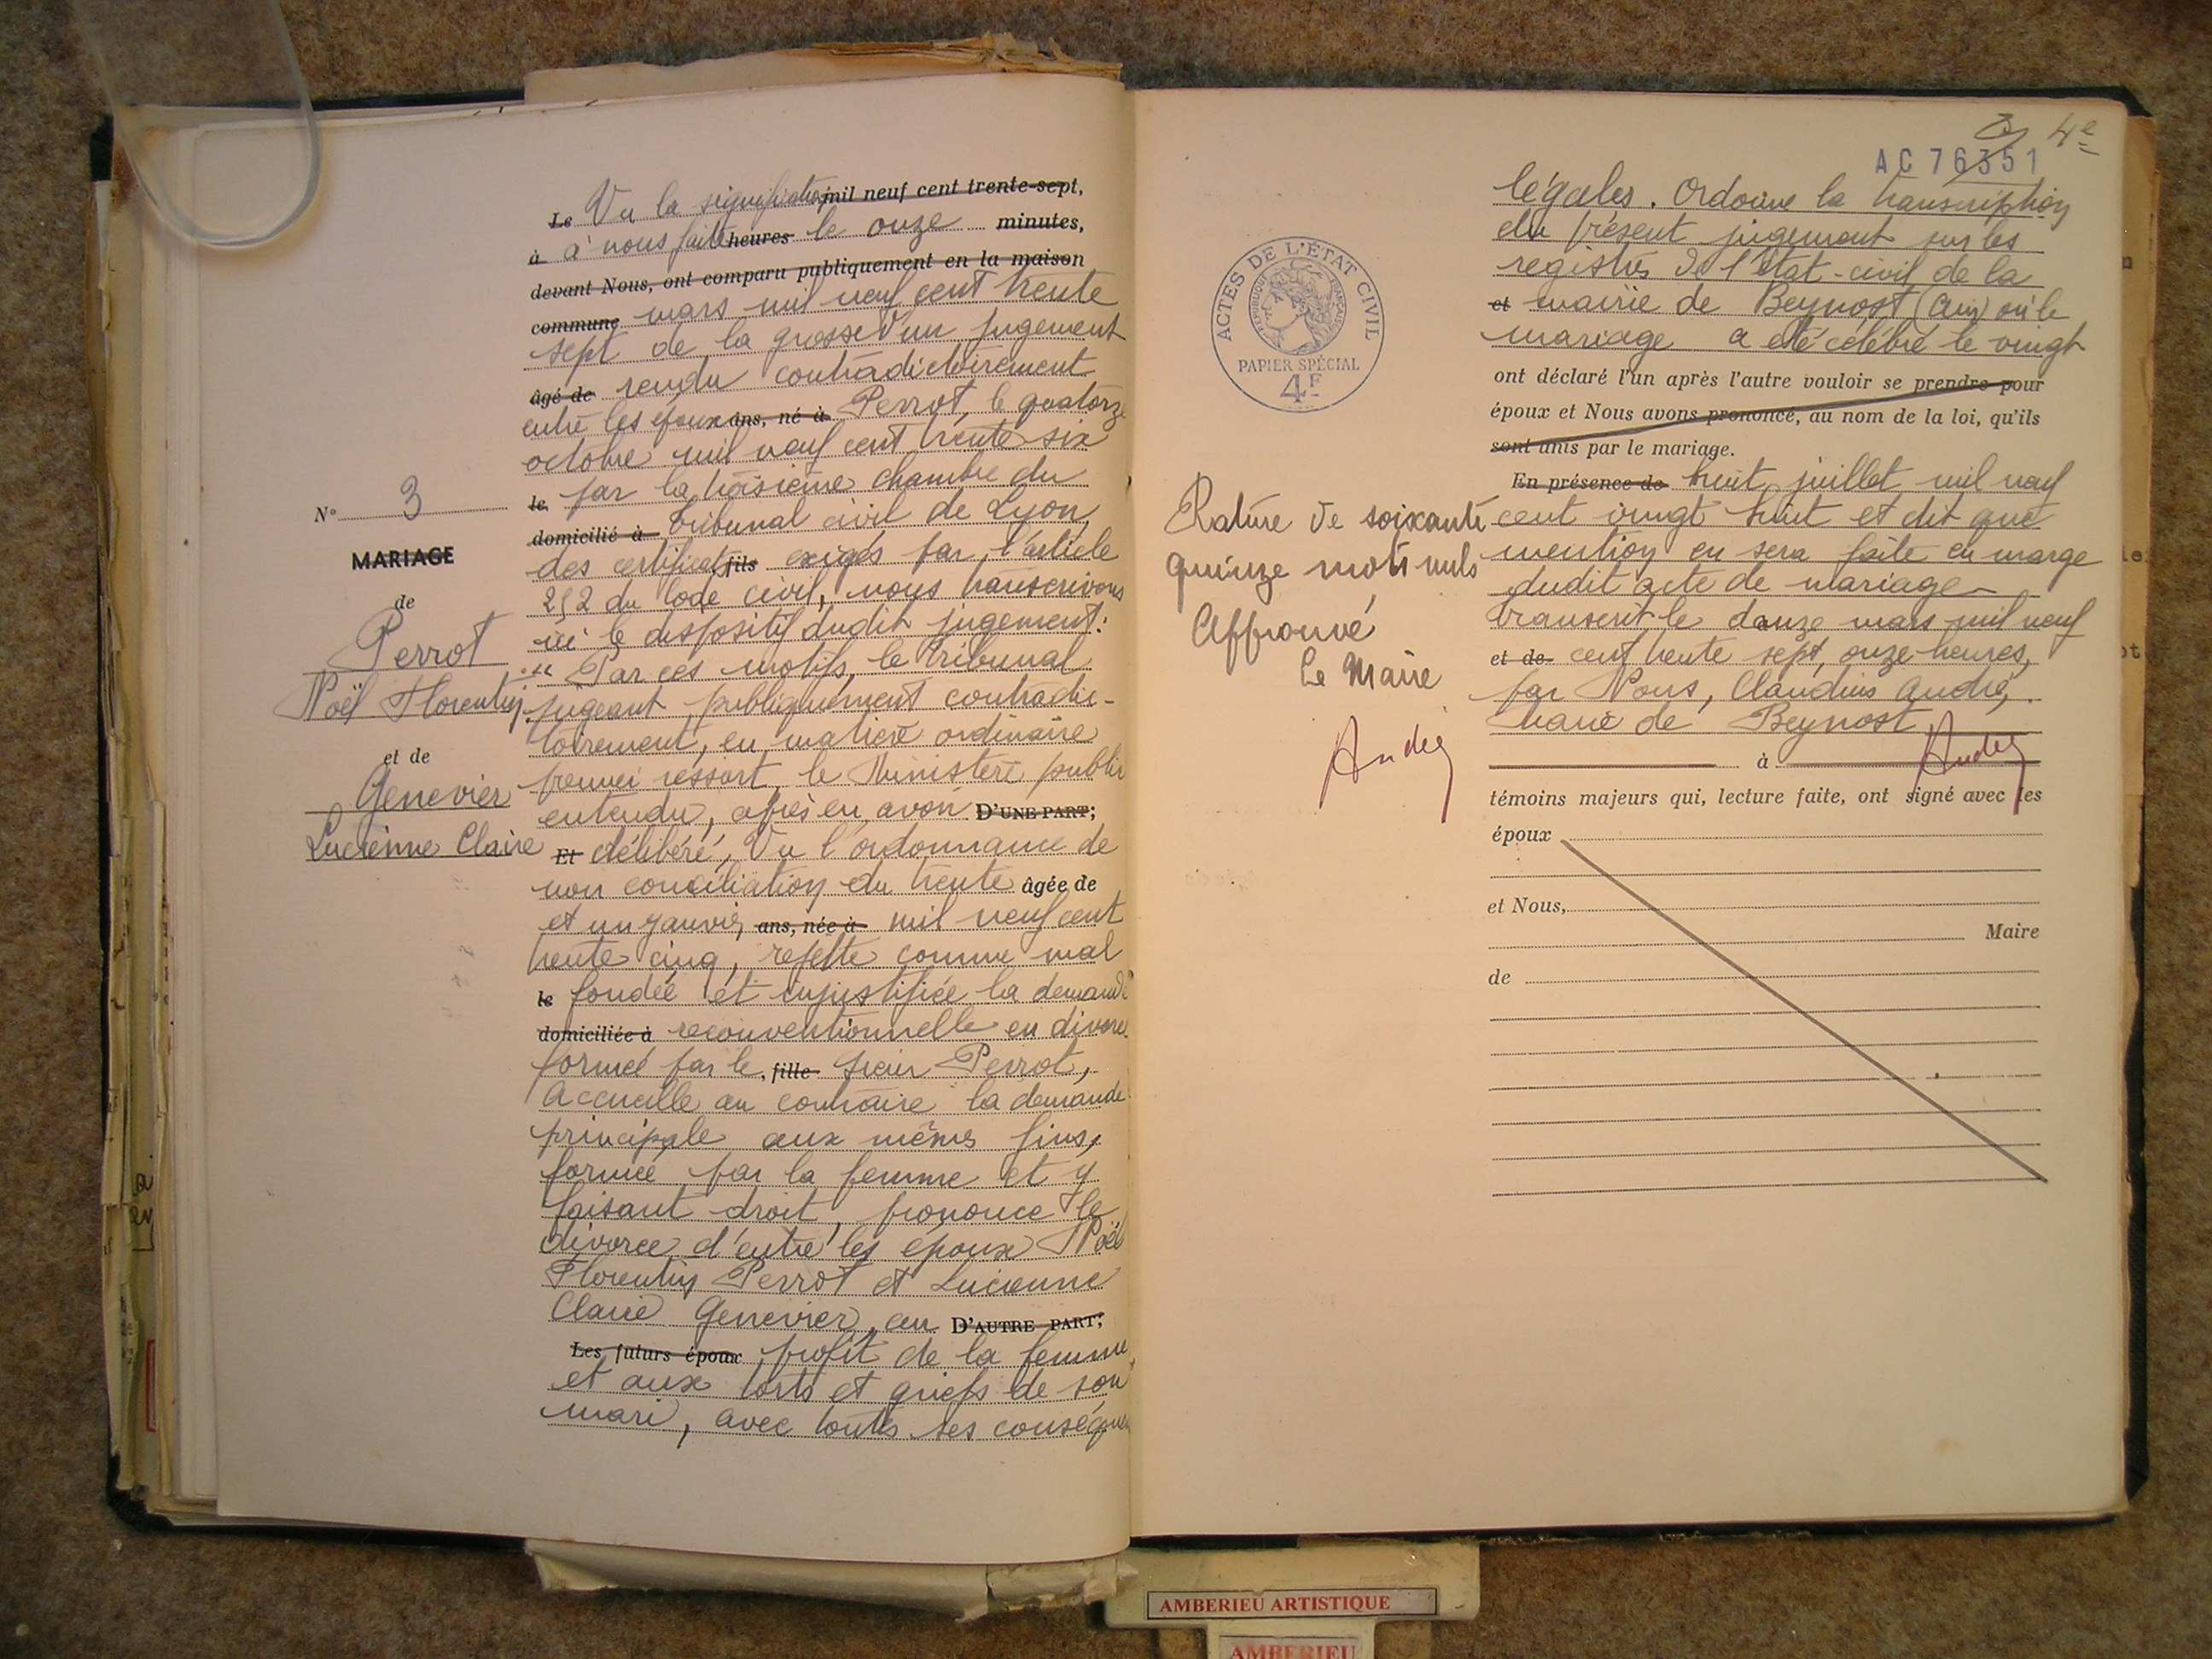 N° 3
MARIAGE
de
Perrot
Noël Florentin
et de
Genevier
Lucienne Claire
Le Vu la signification mil neuf cent trente-sept,
à à nous faite heures le onze minutes,
devant Nous, ont comparu publiquement en la maison
commune mars mil neuf cent trente
sept de la grosse d'un jugement
âgé de rendu contradictoirement
entre les époux ans, né à Perrot, le quatorze
octobre mil neuf cent trente six
le par la troisième chambre du
domicilié à Tribunal civil de Lyon,
des certificats fils exigés par l'article
252 du Code civil, nous transcrivons
ici le dispositif dudit jugement:
"Par ces motifs, le Tribunal
jugeant publiquement contradic-
toirement, en matière ordinaire
premier ressort, le Ministère public
entendu, après en avoir D'UNE PART;
Et délibéré, Vu l'ordonnance de
non conciliation du trente âgée de
et un janvier ans, née à mil neuf cent
trente cinq, rejette comme mal
le fondée et injustifiée la demande
domiciliée à reconventionnelle en divorce
formée par le fille sieur Perrot,
Accueille au contraire la demande
principale aux mêmes fins,
formée par la femme et y
faisant droit, prononce le
divorce d'entre les époux Noël
Florentin Perrot et Lucienne
Claire Genevier, au D'AUTRE PART;
Les futurs époux profit de la femme
et aux torts et griefs de son
mari, avec toutes ses conséquen
4e
AC 76351
ACTES DE L'ÉTAT CIVIL
RÉPUBLIQUE FRANÇAISE
PAPIER SPÉCIAL
4F
légales. Ordonne la transcription
du présent jugement sur les
registres de l'état-civil de la
et mairie de Beynost (Ain) où le
mariage a été célébré le vingt
ont déclaré l'un après l'autre vouloir se prendre pour
époux et Nous avons prononcé, au nom de la loi, qu'ils
sont unis par le mariage.
En présence de huit juillet mil neuf
cent vingt huit et dit que
mention en sera faite en marge
dudit acte de mariage
transcrit le douze mars mil neuf
et de cent trente sept, onze heures,
par Nous, Claudius André,
maire de Beynost
à André
témoins majeurs qui, lecture faite, ont signé avec les
époux
et Nous,
Maire
de
Rature de soixante
quinze mots nuls
Approuvé
Le Maire
André
AMBERIEU ARTISTIQUE
AMBERIEU